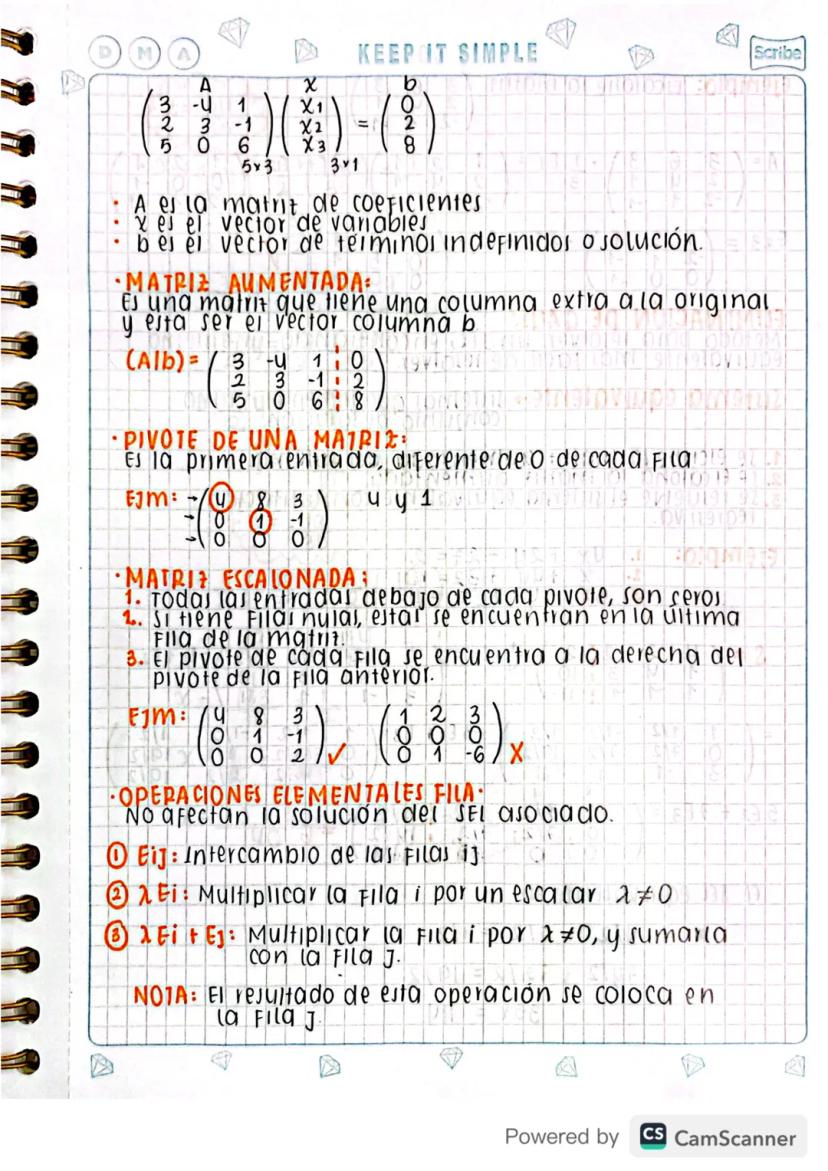 D M A KEEP IT SIMPLE Scribe
A x b
3 -4 1 x1 0
2 3 -1 x2 = 2
5 0 6 x3 8
5x3 3x1
· A es la matriz de coeficientes
· x es el vector de variables
· b es el vector de términos indefinidos o solución.
· MATRIZ AUMENTADA:
Es una matriz que tiene una columna extra a la original
y esta ser el vector columna b
(A|b) = 3 -4 1 0
2 3 -1 2
5 0 6 8
· PIVOTE DE UNA MATRIZ:
Es la primera entrada, diferente de 0 de cada Fila
EJM: → 4 8 3 4 y 1
→ 0 1 -1
→ 0 0 0
· MATRIZ ESCALONADA:
1. Todas las entradas debajo de cada pivote, son seros
2. Si tiene Filas nulas, estas se encuentran en la última
Fila de la matriz.
3. El pivote de cada Fila se encuentra a la derecha del
pivote de la Fila anterior.
EJM: 4 8 3 1 2 3
0 1 -1 0 0 0
0 0 2 ✓ 0 1 -6 X
· OPERACIONES ELEMENTALES FILA·
No afectan la solución del SEL asociado.
① Eij: Intercambio de las Filas ij
② λEi: Multiplicar la Fila i por un escalar λ≠0
③ λEi + Ej: Multiplicar la Fila i por λ≠0, y sumarla
con la Fila j.
NOTA: El resultado de esta operación se coloca en
la Fila j.
Powered by CS CamScanner